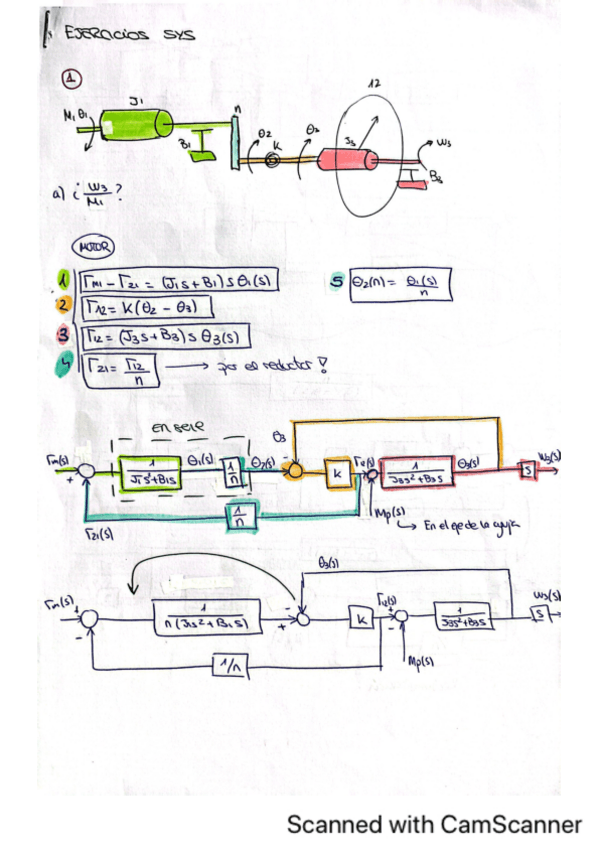 EJERCICIOS SYS
1
J1
M1 θ1
n
B1
θ2
K
θ3
J3
12
W3
B3
a) ¿ W3/M1 ?
MOTOR
1 Γm1 - Γ21 = (J1s + B1) s θ1(s)
2 Γ12 = K(θ2 - θ3)
3 Γ12 = (J3s + B3) s θ3(s)
4 Γ21 = Γ12/n → por es reductor!
5 θ2(n) = θ1(s)/n
En serie
θ3
Γm(s)
+
1/J1s²+B1s
θ1(s)
1/n
θ2(s)
-
K
Γ12(s)
1/J3s²+B3s
θ3(s)
s
W3(s)
1/n
Γ21(s)
Mp(s)
↳ En el eje de la aguja
θ3(s)
Γm(s)
+
-
1/n(J1s²+B1s)
-
+
K
Γ12(s)
+
-
1/J3s²+B3s
s
W3(s)
1/n
Mp(s)
Scanned with CamScanner